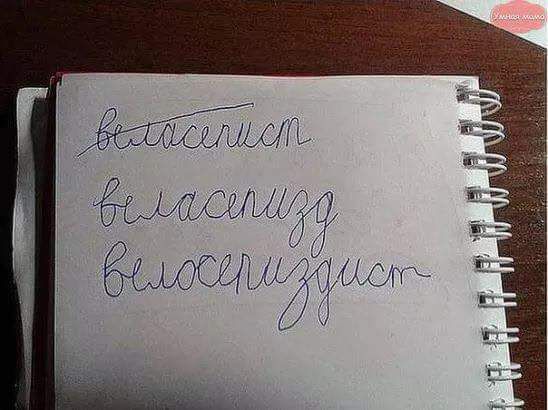 Умная мама
веласепист
веласепизд
велосепиздист